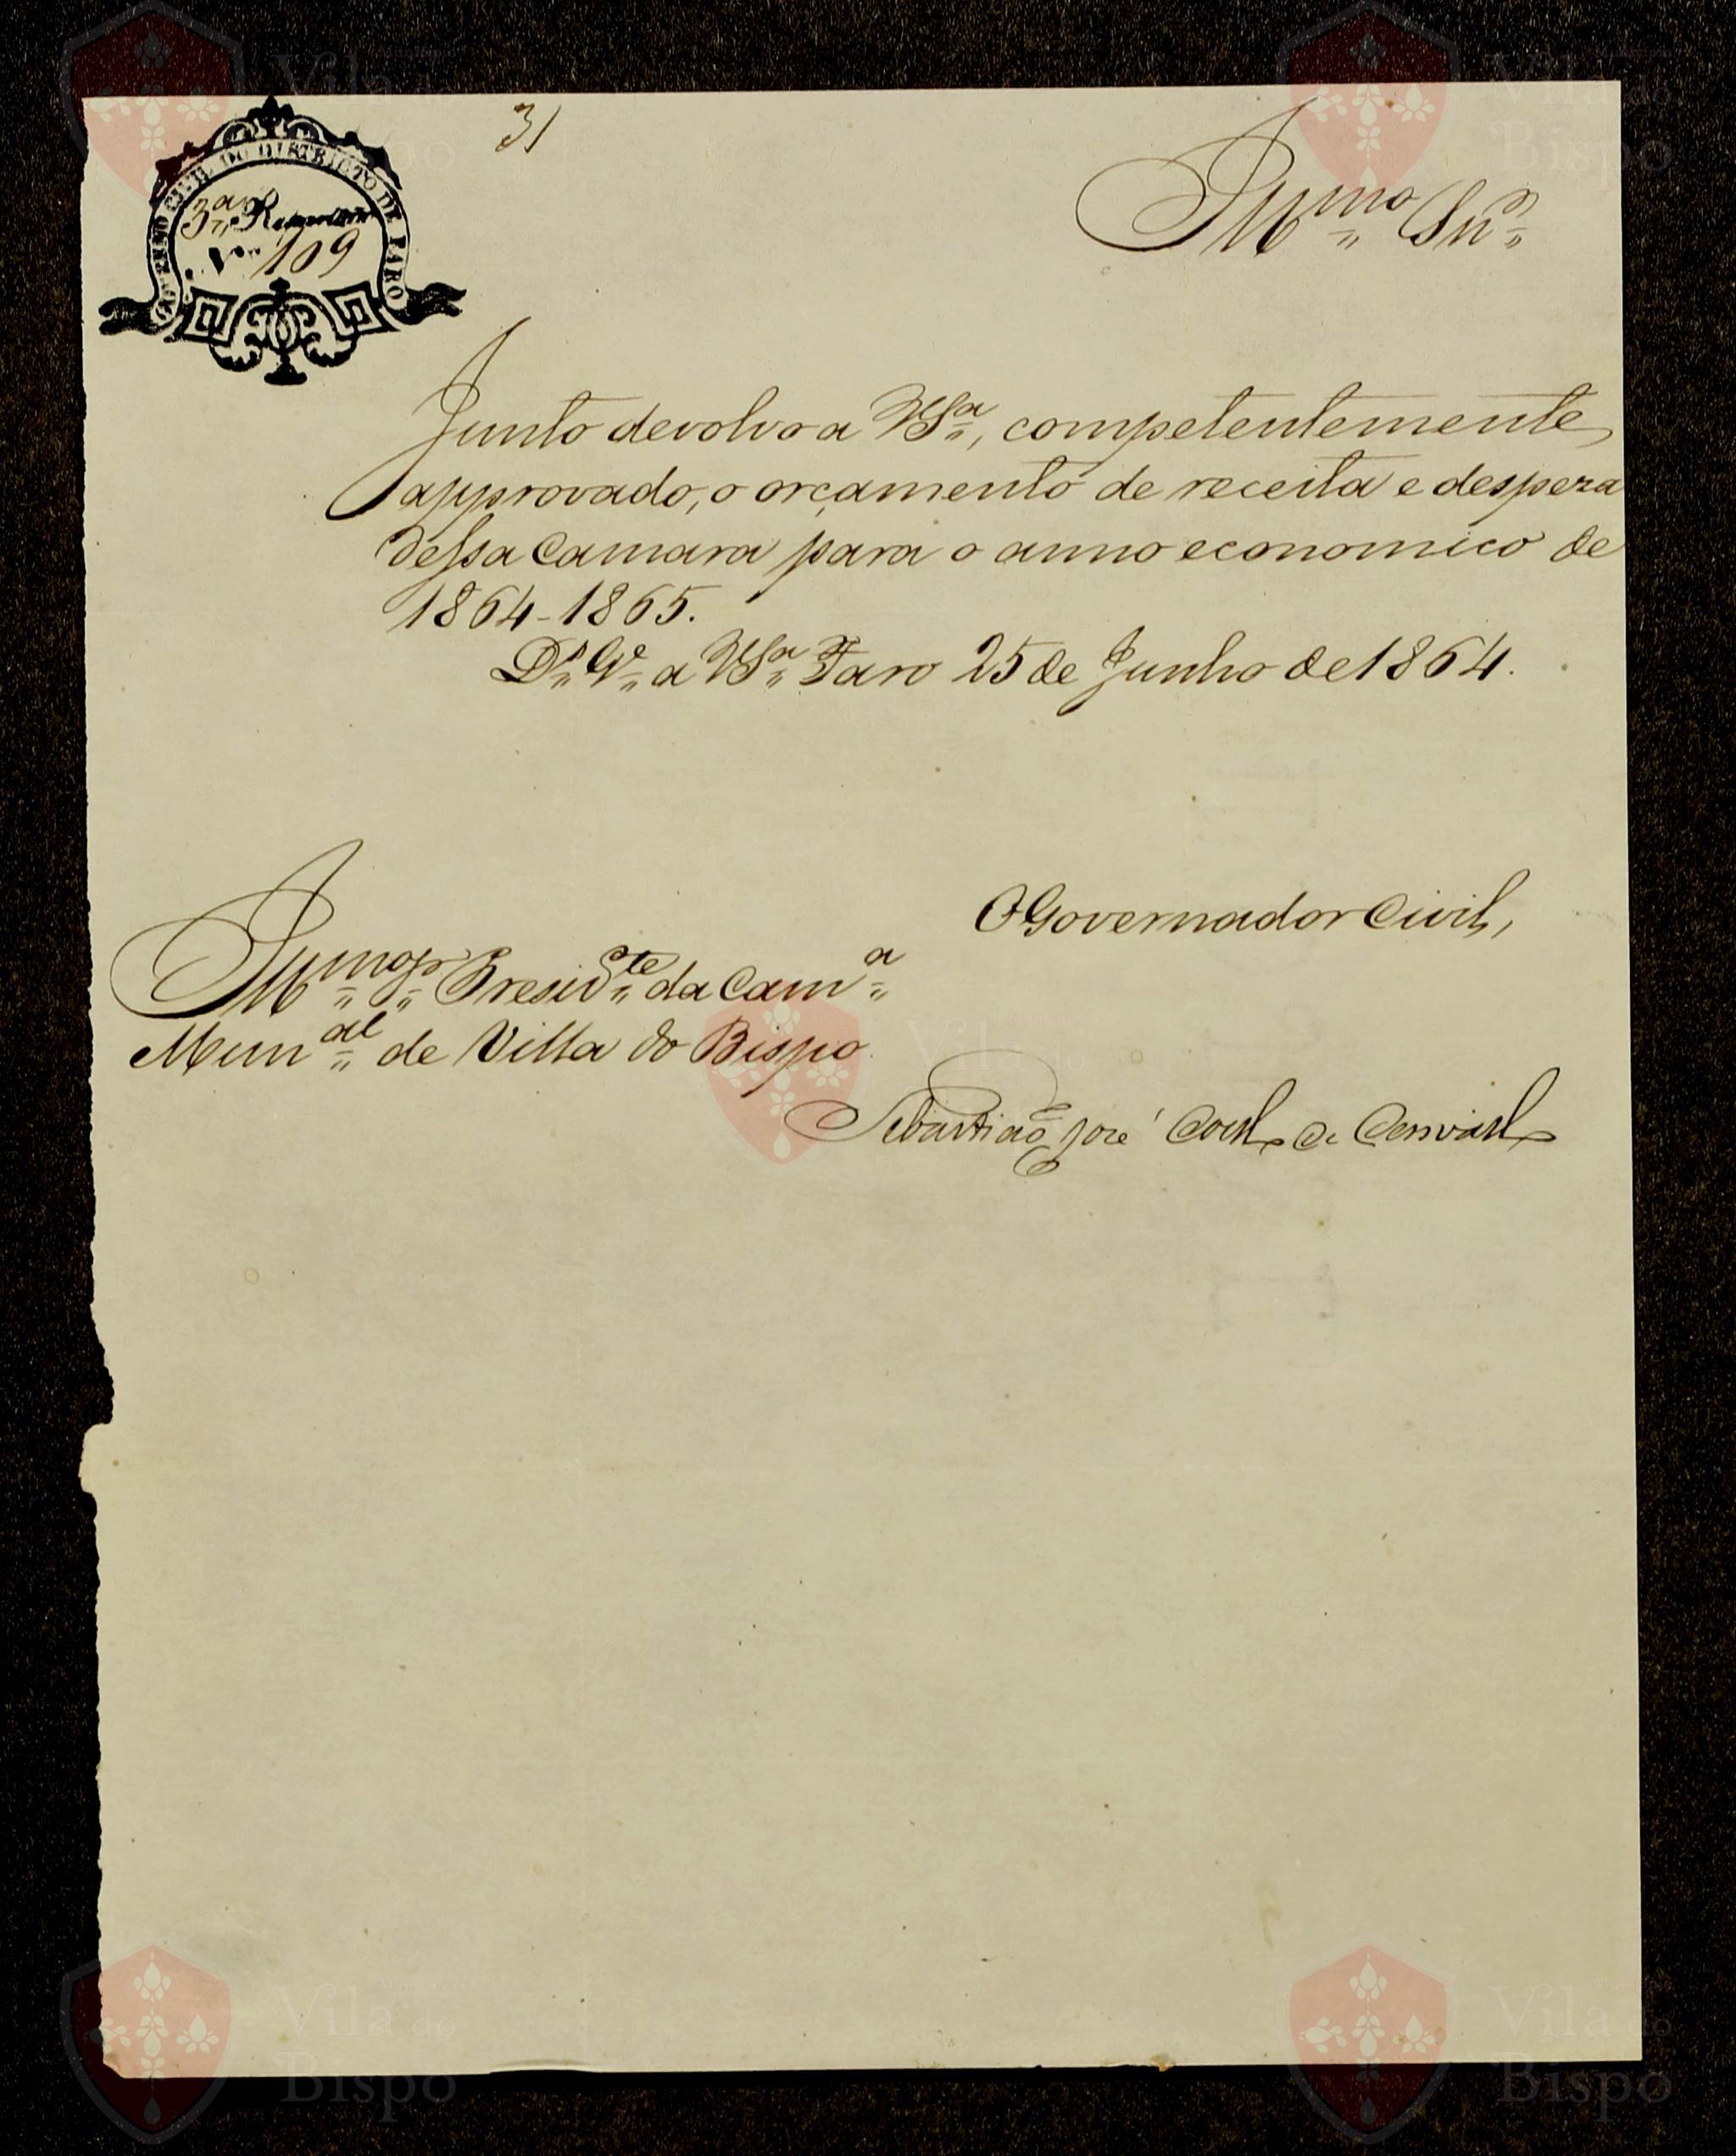 31
GOVERNO CIVIL DO DISTRICTO DE FARO
3ª Repartição
Nº 109
Illmo Snr
Junto devolvo a VSª, competentemente
approvado, o orçamento de receita e despeza
dessa Camara para o anno economico de
1864-1865.
Ds Ge a VSª Faro 25 de Junho de 1864.
O Governador Civil,
Illmo Sr Presidte da Camª
Munal de Villa do Bispo
Sebastião José Coelho de Carvalho
Vila do Bispo